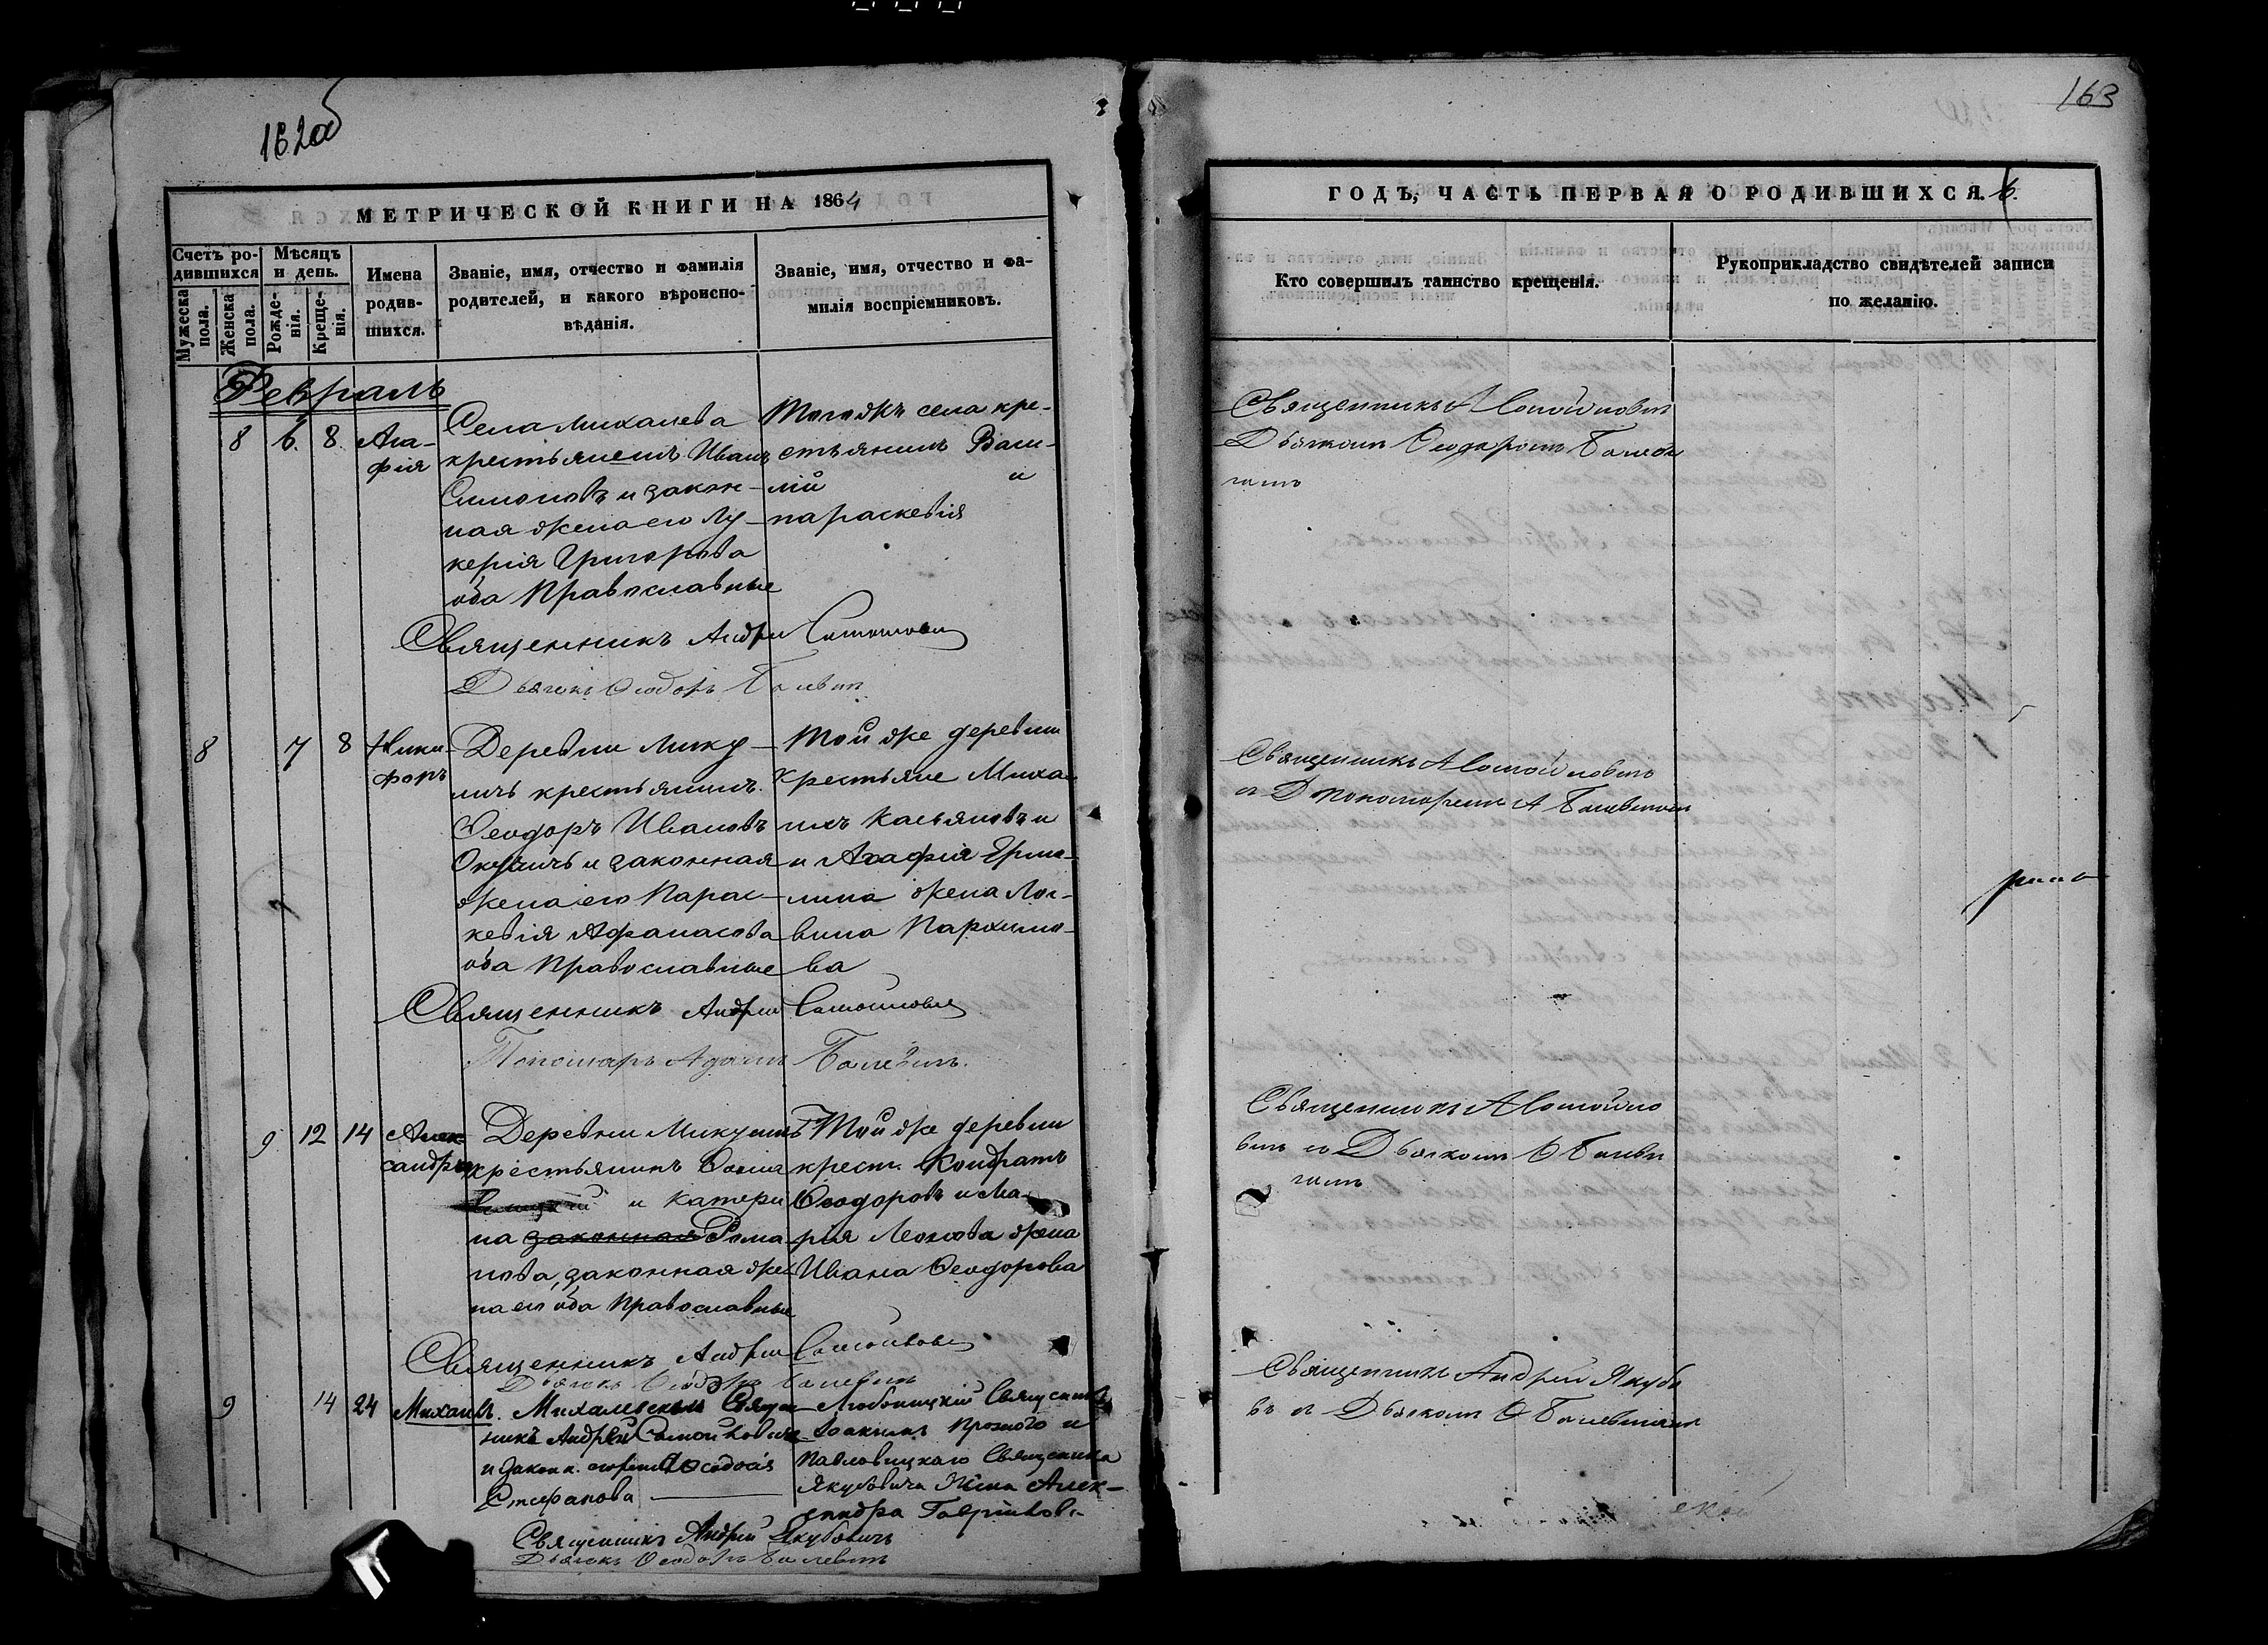 162об
МЕТРИЧЕСКОЙ КНИГИ НА 1864
Счетъ ро-
дившихся
Мужеска
пола.
Женска
пола.
Мѣсяцъ
и день.
Рожде-
нія.
Креще-
нія.
Имена
родив-
шихся.
Званіе, имя, отчество и фамилія
родителей, и какого вѣроиспо-
вѣданія.
Званіе, имя, отчество и фа-
милія воспріемниковъ.
Февраль
8 6. 8. Ага-
фія
Села Михалева
крестьянинъ Иванъ
Симоновъ и закон-
ная жена его Лу-
керія Григорова
оба Православные
Тогожъ села кре-
стьянинъ Васи-
лій и
параскевія
Священникъ Андрей Самойловичъ
Дьячекъ Ѳеодоръ Балевич
8 7 8 Ники-
форъ
Деревни Мику-
личъ крестьянинъ
Ѳеодоръ Ивановъ
и законная
жена его Парас-
кевія Афанасова
оба Православные
Той же деревни
крестьяне Миха-
Касьяновъ и
и Агафія Ерmo-
лина жена Лог-
вина Пархимо-
ва
Священникъ Андрей Самойловичъ
Пономарь Адамъ Балевичъ.
9 12 14 Алек-
сандра
Деревни Микуличъ
крестьянинъ
и катери
на законная Рома
нова, законная же
на его оба Православные
Той же деревни
крест. Кондратъ
Ѳеодоровъ и Ма-
рія Леонова жена
Ивана Ѳеодорова
Священникъ Андрей Самойловичъ
Дьячекъ Ѳеодоръ Балевич
9 14 24 Михаилъ.
Михалевскій Священ-
никъ Андрей Самойловичъ
и законн. Ѳеодосія
Стефанова
Любоницкій Священникъ
Іоакимъ и
Павловицкаго Священника
Якубовича Жена Алек-
сандра Гаврилова
Священникъ Андрей Якубовичъ
Дьячекъ Ѳеодоръ Балевич
163
ГОДЪ, ЧАСТЬ ПЕРВАЯ О РОДИВШИХСЯ. 6.
Кто совершилъ таинство крещенія.
Рукоприкладство свидѣтелей записи
по желанію.
Священникъ А Самойлович
Дьячкомъ Ѳеодоромъ Балеви
чимъ
Священникъ А Самойлович
с пономоремъ А Балевичом
Священникъ А Самойло
вич со Дьячкомъ Ѳ Балеви
чимъ
Священникъ Андрей Якубо
въ с Дьячкомъ Ѳ Балевичом